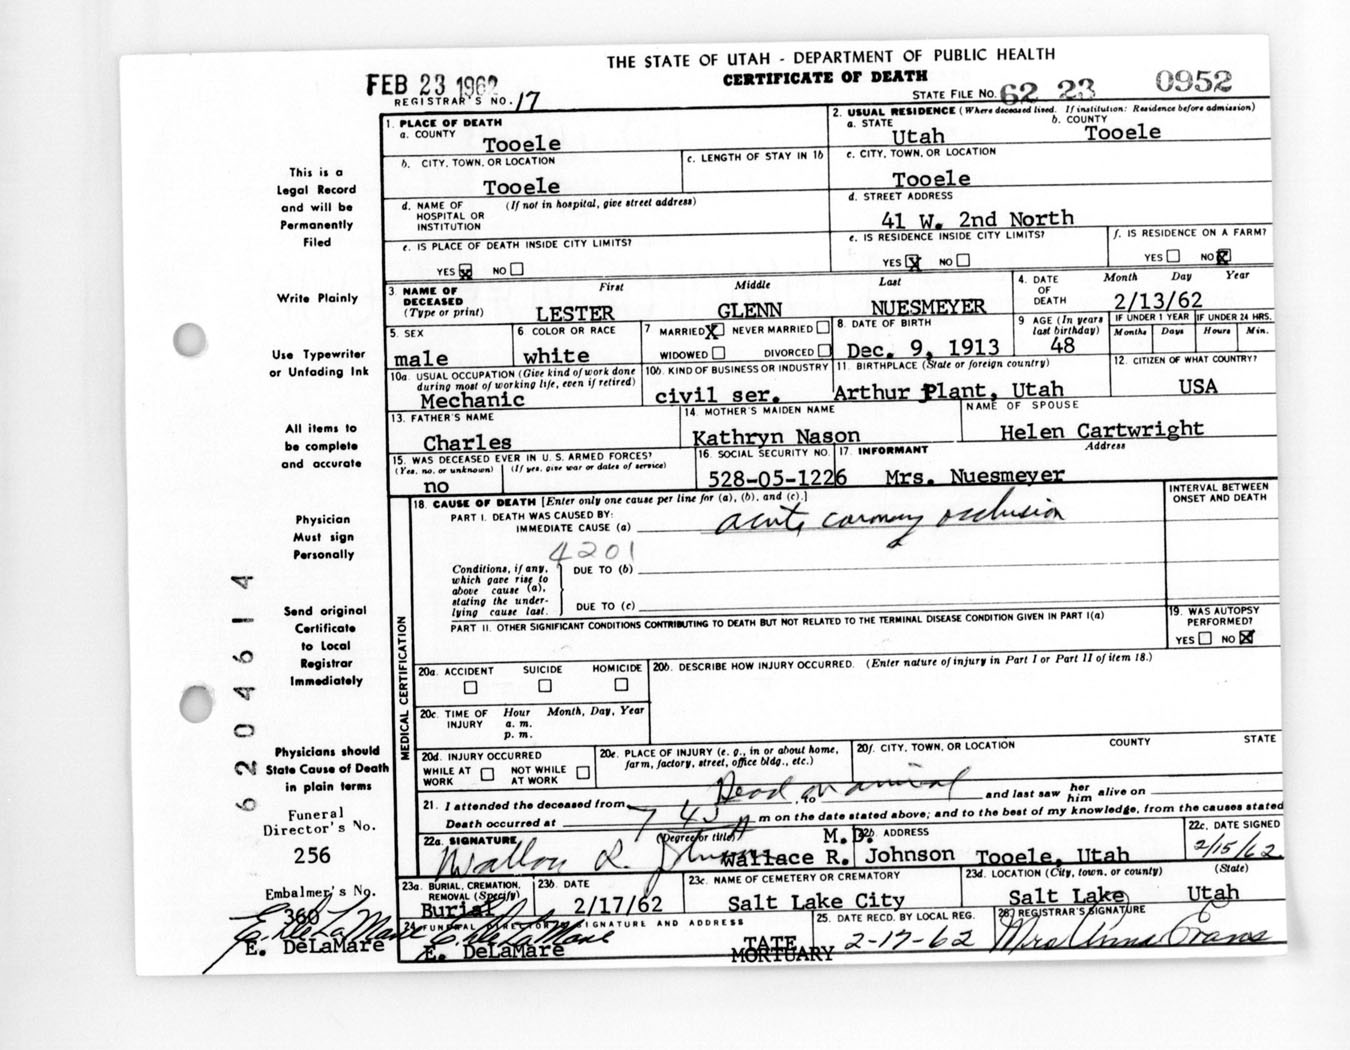 THE STATE OF UTAH - DEPARTMENT OF PUBLIC HEALTH
FEB 23 1962
CERTIFICATE OF DEATH
REGISTRAR'S NO. 17
STATE FILE NO. 62 23 0952
1. PLACE OF DEATH
a. COUNTY
Tooele
2. USUAL RESIDENCE (Where deceased lived. If institution: Residence before admission)
a. STATE b. COUNTY
Utah Tooele
b. CITY, TOWN, OR LOCATION
Tooele
c. LENGTH OF STAY IN 1b
c. CITY, TOWN, OR LOCATION
Tooele
d. NAME OF HOSPITAL OR INSTITUTION (If not in hospital, give street address)
d. STREET ADDRESS
41 W. 2nd North
e. IS PLACE OF DEATH INSIDE CITY LIMITS?
YES X NO
e. IS RESIDENCE INSIDE CITY LIMITS?
YES X NO
f. IS RESIDENCE ON A FARM?
YES NO X
3. NAME OF DECEASED (Type or print)
First Middle Last
LESTER GLENN NUESMEYER
4. DATE OF DEATH
Month Day Year
2/13/62
5. SEX
male
6. COLOR OR RACE
white
7 MARRIED X NEVER MARRIED
WIDOWED DIVORCED
8. DATE OF BIRTH
Dec. 9, 1913
9 AGE (In years last birthday)
48
IF UNDER 1 YEAR
Months Days
IF UNDER 24 HRS.
Hours Min.
10a. USUAL OCCUPATION (Give kind of work done during most of working life, even if retired)
Mechanic
10b. KIND OF BUSINESS OR INDUSTRY
civil ser.
11. BIRTHPLACE (State or foreign country)
Arthur Plant, Utah
12. CITIZEN OF WHAT COUNTRY?
USA
13. FATHER'S NAME
Charles
14. MOTHER'S MAIDEN NAME
Kathryn Nason
NAME OF SPOUSE
Helen Cartwright
15. WAS DECEASED EVER IN U. S. ARMED FORCES?
(Yes, no, or unknown) (If yes, give war or dates of service)
no
16. SOCIAL SECURITY NO.
528-05-1226
17. INFORMANT Address
Mrs. Nuesmeyer
18. CAUSE OF DEATH [Enter only one cause per line for (a), (b), and (c).]
INTERVAL BETWEEN ONSET AND DEATH
PART I. DEATH WAS CAUSED BY:
IMMEDIATE CAUSE (a) acute coronary occlusion
4201
Conditions, if any, which gave rise to above cause (a), stating the underlying cause last.
DUE TO (b)
DUE TO (c)
PART II. OTHER SIGNIFICANT CONDITIONS CONTRIBUTING TO DEATH BUT NOT RELATED TO THE TERMINAL DISEASE CONDITION GIVEN IN PART I(a)
19. WAS AUTOPSY PERFORMED?
YES NO X
MEDICAL CERTIFICATION
20a. ACCIDENT SUICIDE HOMICIDE
20b. DESCRIBE HOW INJURY OCCURRED. (Enter nature of injury in Part I or Part II of item 18.)
20c. TIME OF INJURY Hour Month, Day, Year
a. m.
p. m.
20d. INJURY OCCURRED
WHILE AT WORK NOT WHILE AT WORK
20e. PLACE OF INJURY (e. g., in or about home, farm, factory, street, office bldg., etc.)
20f. CITY, TOWN, OR LOCATION COUNTY STATE
21. I attended the deceased from Dead on arrival, to and last saw her him alive on
Death occurred at 7 45 A m on the date stated above; and to the best of my knowledge, from the causes stated
22a. SIGNATURE (Degree or title)
Wallace R. Johnson
M.D.
Wallace R. Johnson
22b. ADDRESS
Tooele, Utah
22c. DATE SIGNED
2/15/62
23a. BURIAL, CREMATION, REMOVAL (Specify)
Burial
23b. DATE
2/17/62
23c. NAME OF CEMETERY OR CREMATORY
Salt Lake City
23d. LOCATION (City, town, or county) (State)
Salt Lake Utah
24. FUNERAL DIRECTOR'S SIGNATURE AND ADDRESS
E. DeLaMare
E. DeLaMare
TATE MORTUARY
25. DATE RECD. BY LOCAL REG.
2-17-62
26. REGISTRAR'S SIGNATURE
Mrs Anna Evans
This is a
Legal Record
and will be
Permanently
Filed
Write Plainly
Use Typewriter
or Unfading Ink
All items to
be complete
and accurate
Physician
Must sign
Personally
Send original
Certificate
to Local
Registrar
Immediately
Physicians should
State Cause of Death
in plain terms
Funeral
Director's No.
256
Embalmer's No.
360
E. DeLaMare
E. DeLaMare
6204614